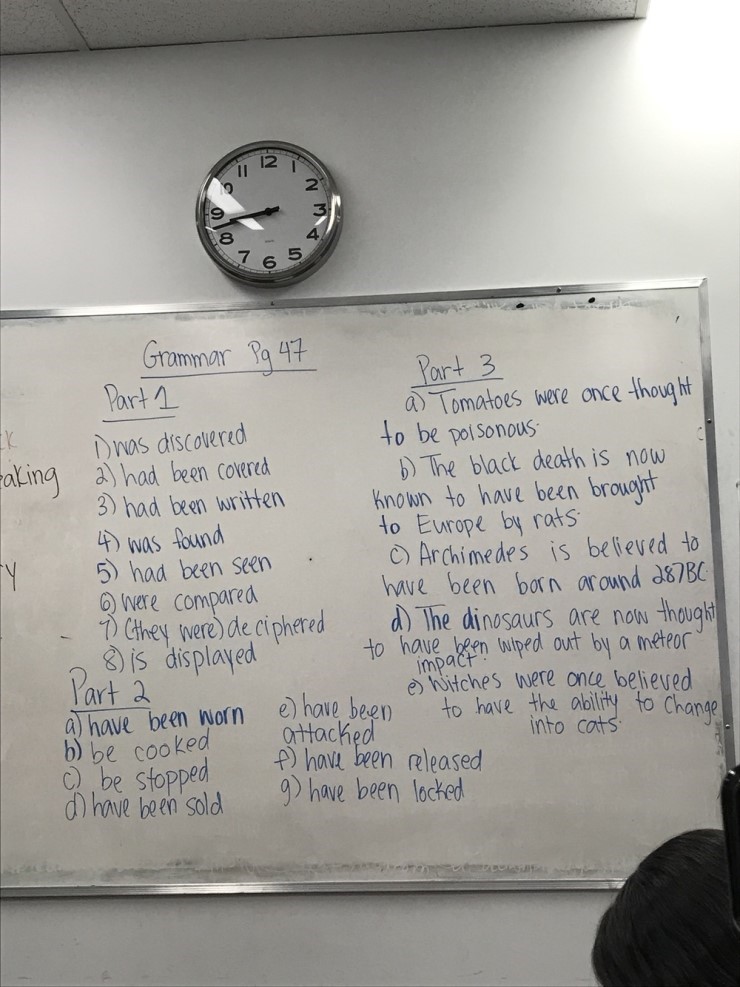 12
1
2
3
4
5
6
7
8
9
10
11
Grammar Pg 47
Part 1
1) was discovered
2) had been covered
3) had been written
4) was found
5) had been seen
6) were compared
7) (they were) deciphered
8) is displayed
Part 2
a) have been worn
b) be cooked
c) be stopped
d) have been sold
e) have been
attacked
f) have been released
g) have been locked
Part 3
a) Tomatoes were once thought
to be poisonous.
b) The black death is now
known to have been brought
to Europe by rats.
c) Archimedes is believed to
have been born around 287BC.
d) The dinosaurs are now thought
to have been wiped out by a meteor
impact.
e) Witches were once believed
to have the ability to change
into cats.
eaking